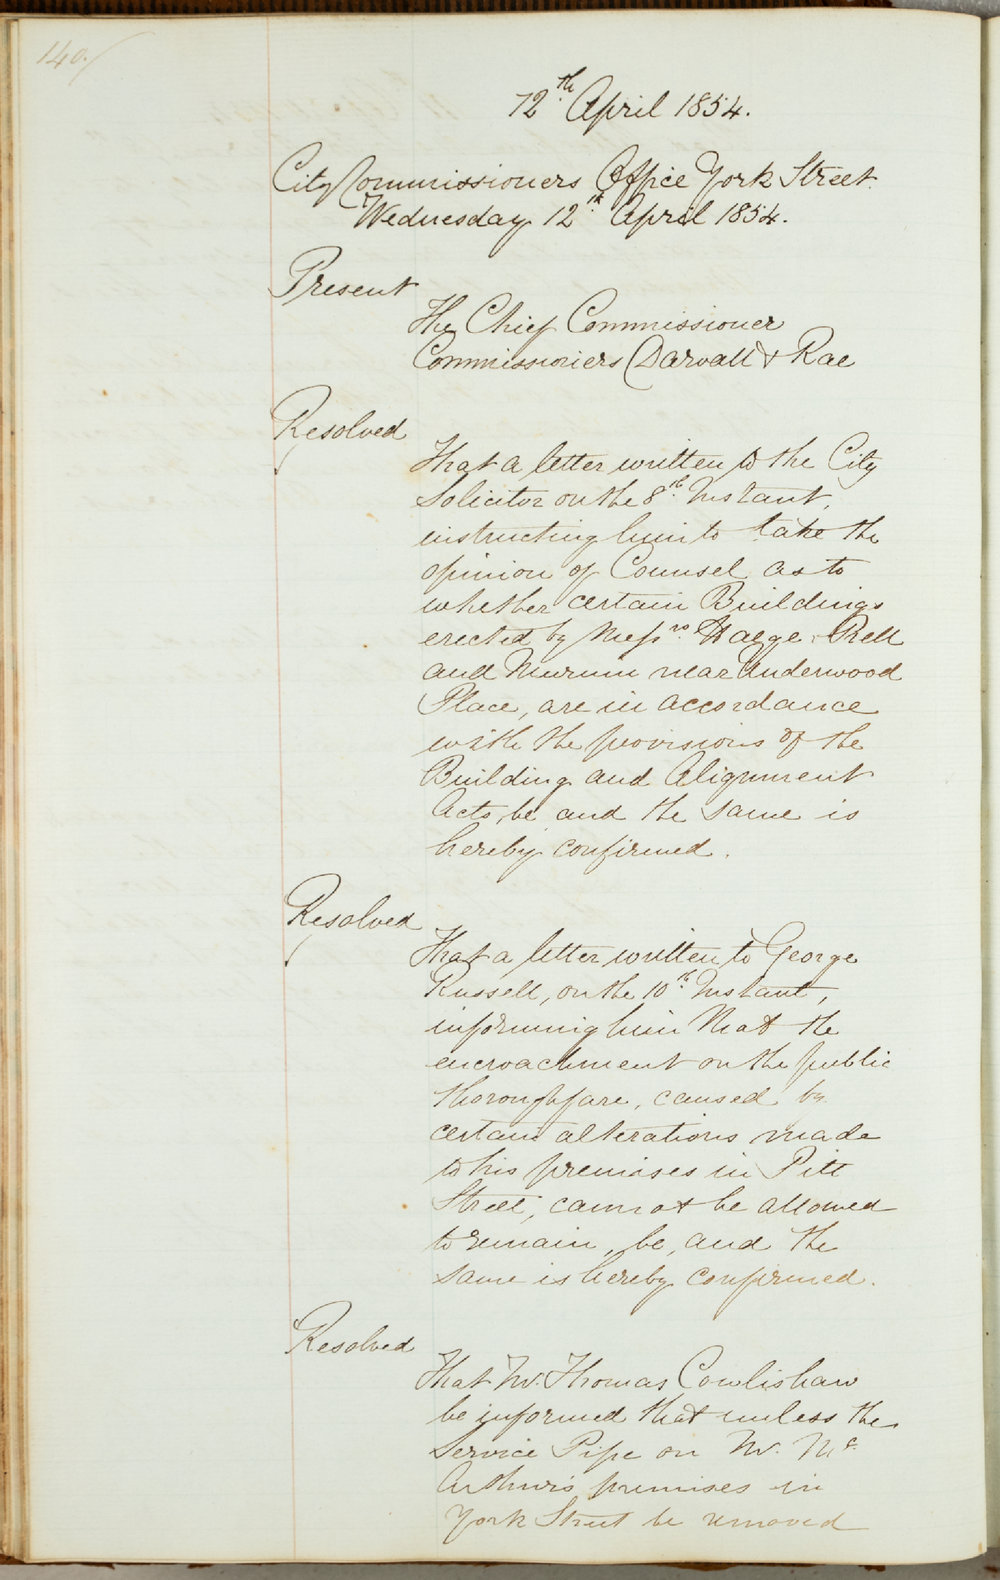 140.
12th. April 1854.
City Commissioners Office York Street.
Wednesday 12th. April 1854.
Present
The Chief Commissioner
Commissioners Darvall & Rae
Resolved
That a letter written to the City
Solicitor on the 8th. Instant,
instructing him to take the
opinion of Counsel as to
whether certain Buildings
erected by Messrs.
and near Underwood
Place, are in accordance
with the provisions of the
Building and Alignment
Acts, be and the same is
hereby confirmed.
Resolved
That a letter written to George
Russell, on the 10th. Instant,
informing him that the
encroachment on the public
thoroughfare, caused by
certain alterations made
to his premises in Pitt
Street, cannot be allowed
to remain, be, and the
same is hereby confirmed.
Resolved
That Mr. Thomas Cowlishaw
be informed that unless the
Service Pipe on Mr. Mc.
Arthur's premises in
York Street be removed